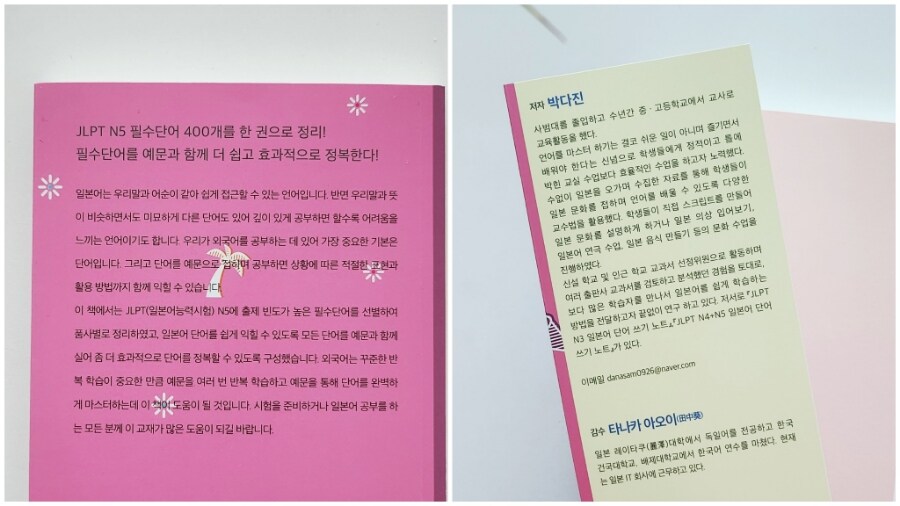 JLPT N5 필수단어 400개를 한 권으로 정리!
필수단어를 예문과 함께 더 쉽고 효과적으로 정복한다!
일본어는 우리말과 어순이 같아 쉽게 접근할 수 있는 언어입니다. 반면 우리말과 뜻
이 비슷하면서도 미묘하게 다른 단어도 있어 깊이 있게 공부하면 할수록 어려움을
느끼는 언어이기도 합니다. 우리가 외국어를 공부하는 데 있어 가장 중요한 기본은
단어입니다. 그리고 단어를 예문으로 접하며 공부하면 상황에 따른 적절한 표현과
활용 방법까지 함께 익힐 수 있습니다.
이 책에서는 JLPT(일본어능력시험) N5에 출제 빈도가 높은 필수단어를 선별하여
품사별로 정리하였고, 일본어 단어를 쉽게 익힐 수 있도록 모든 단어를 예문과 함께
실어 좀 더 효과적으로 단어를 정복할 수 있도록 구성했습니다. 외국어는 꾸준한 반
복 학습이 중요한 만큼 예문을 여러 번 반복 학습하고 예문을 통해 단어를 완벽하
게 마스터하는데 이 책이 도움이 될 것입니다. 시험을 준비하거나 일본어 공부를 하
는 모든 분께 이 교재가 많은 도움이 되길 바랍니다.
저자 박다진
사범대를 졸업하고 수년간 중·고등학교에서 교사로
교육활동을 했다.
언어를 마스터 하기는 결코 쉬운 일이 아니며 즐기면서
배워야 한다는 신념으로 학생들에게 정적이고 틀에
박힌 교실 수업보다 효율적인 수업을 하고자 노력했다.
수없이 일본을 오가며 수집한 자료를 통해 학생들이
일본 문화를 접하며 언어를 배울 수 있도록 다양한
교수법을 활용했다. 학생들이 직접 스크립트를 만들어
일본 문화를 설명하게 하거나 일본 의상 입어보기,
일본어 연극 수업, 일본 음식 만들기 등의 문화 수업을
진행하였다.
신설 학교 및 인근 학교 교과서 선정위원으로 활동하며
여러 출판사 교과서를 검토하고 분석했던 경험을 토대로,
보다 많은 학습자를 만나서 일본어를 쉽게 학습하는
방법을 전달하고자 끝없이 연구 하고 있다. 저서로 『JLPT
N3 일본어 단어 쓰기 노트』『JLPT N4+N5 일본어 단어
쓰기 노트』가 있다.
이메일 danasam0926@naver.com
감수 타나카 아오이(田中葵)
일본 레이타쿠(麗澤)대학에서 독일어를 전공하고 한국
건국대학교, 배재대학교에서 한국어 연수를 마쳤다. 현재
는 일본 IT 회사에 근무하고 있다.